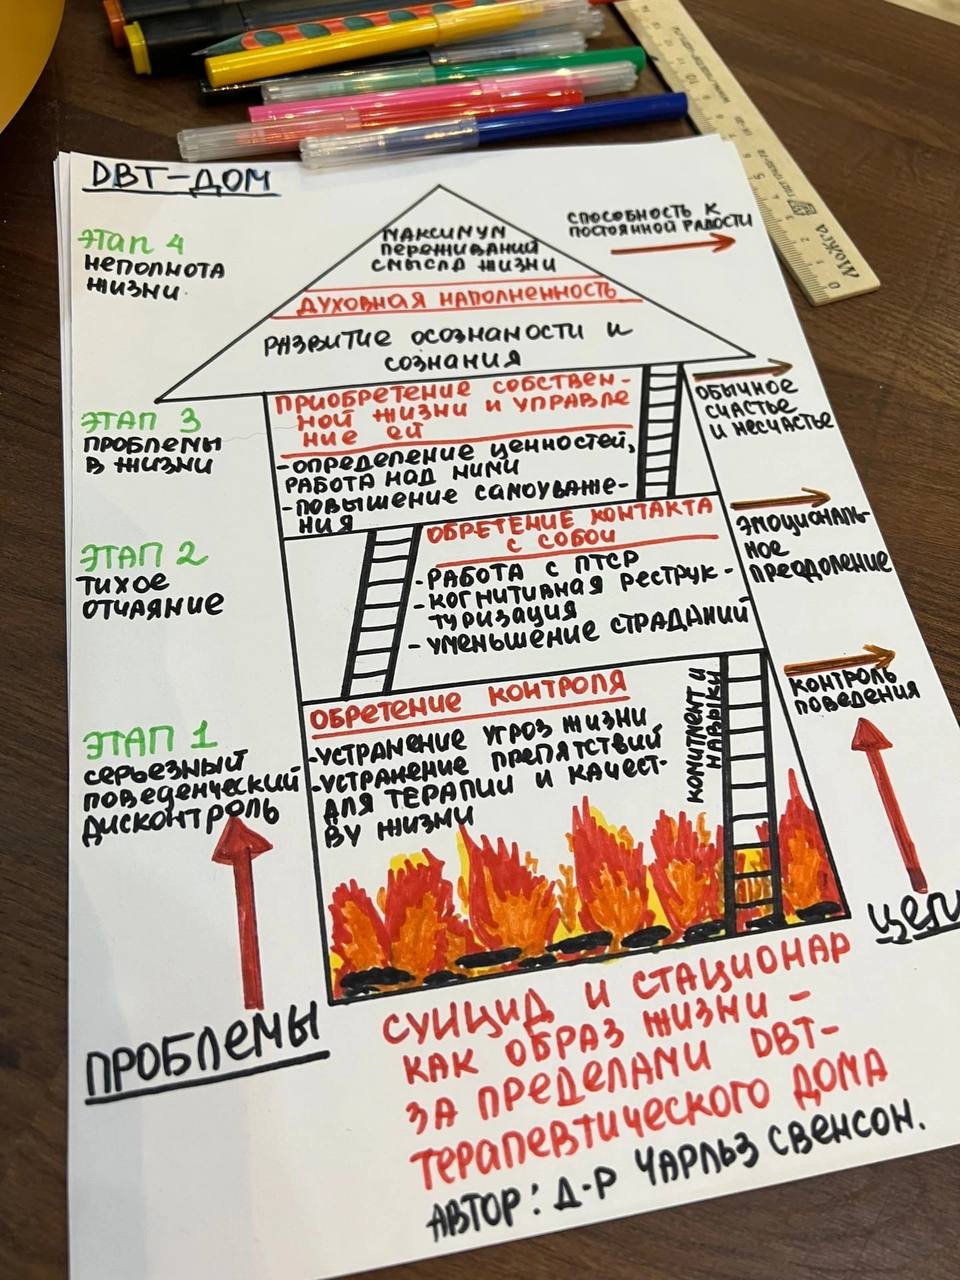 DBT-ДОМ
ЭТАП 4
НЕПОЛНОТА
ЖИЗНИ.
МАКСИМУМ
ПЕРЕЖИВАНИЙ
СМЫСЛА ЖИЗНИ
СПОСОБНОСТЬ К
ПОСТОЯННОЙ РАДОСТИ
ДУХОВНАЯ НАПОЛНЕННОСТЬ
РАЗВИТИЕ ОСОЗНАНОСТИ И
СОЗНАНИЯ
ЭТАП 3
ПРОБЛЕМЫ
В ЖИЗНИ
ПРИОБРЕТЕНИЕ СОБСТВЕН-
НОЙ ЖИЗНИ И УПРАВЛЕ
НИЕ ЕЙ
-ОПРЕДЕЛЕНИЕ ЦЕННОСТЕЙ,
РАБОТА НАД НИМИ
-ПОВЫШЕНИЕ САМОУВАЖЕ-
НИЯ
ОБЫЧНОЕ
СЧАСТЬЕ
И НЕСЧАСТЬЕ
ЭТАП 2
ТИХОЕ
ОТЧАЯНИЕ
ОБРЕТЕНИЕ КОНТАКТА
С СОБОЙ
-РАБОТА С ПТСР
-КОГНИТИВНАЯ РЕСТРУК-
ТУРИЗАЦИЯ
-УМЕНЬШЕНИЕ СТРАДАНИЙ
ЭМОЦИОНАЛЬ-
НОЕ
ПРЕОДОЛЕНИЕ
ЭТАП 1
СЕРЬЕЗНЫЙ
ПОВЕДЕНЧЕСКИЙ
ДИСКОНТРОЛЬ
ОБРЕТЕНИЕ КОНТРОЛЯ
-УСТРАНЕНИЕ УГРОЗ ЖИЗНИ
-УСТРАНЕНИЕ ПРЕПЯТСТВИЙ
ДЛЯ ТЕРАПИИ И КАЧЕСТ-
ВУ ЖИЗНИ
КОМИТМЕНТ И
НАВЫКИ
КОНТРОЛЬ
ПОВЕДЕНИЯ
ПРОБЛЕМЫ
ЦЕЛИ
СУИЦИД И СТАЦИОНАР
КАК ОБРАЗ ЖИЗНИ -
ЗА ПРЕДЕЛАМИ DBT-
ТЕРАПЕВТИЧЕСКОГО ДОМА
АВТОР: Д-Р ЧАРЛЬЗ СВЕНСОН.
Можга